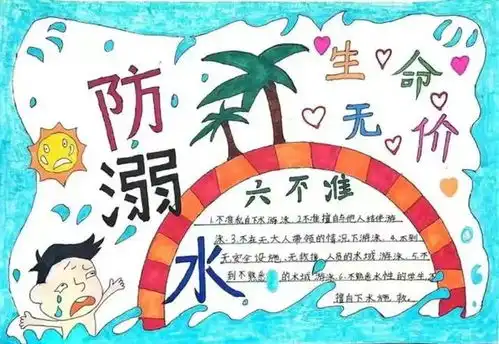 防
溺
水
生命
无价
六不准
1.不准私自下水游泳 2.不准擅自与他人结伴游
泳.3.不在无大人带领的情况下游泳.4.不到
无安全设施、无救援人员的水域游泳.5.不
到不熟悉的水域游泳.6.不熟悉水性的学生不
擅自下水施救.